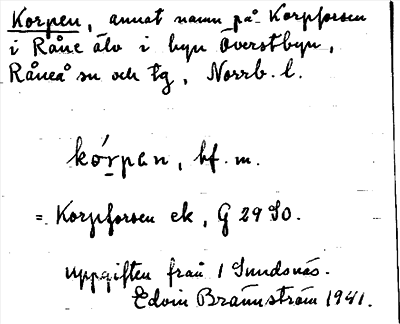 Korpen, annat namn på Korpforsen
i Råne älv i byn Överstbyn,
Råneå sn och tg, Norrb. l.
kórpan, bf. m.
= Korpforsen ek, G 29 SO.
Uppgiften från 1 Sundsnäs.
Edvin Brännström 1941.